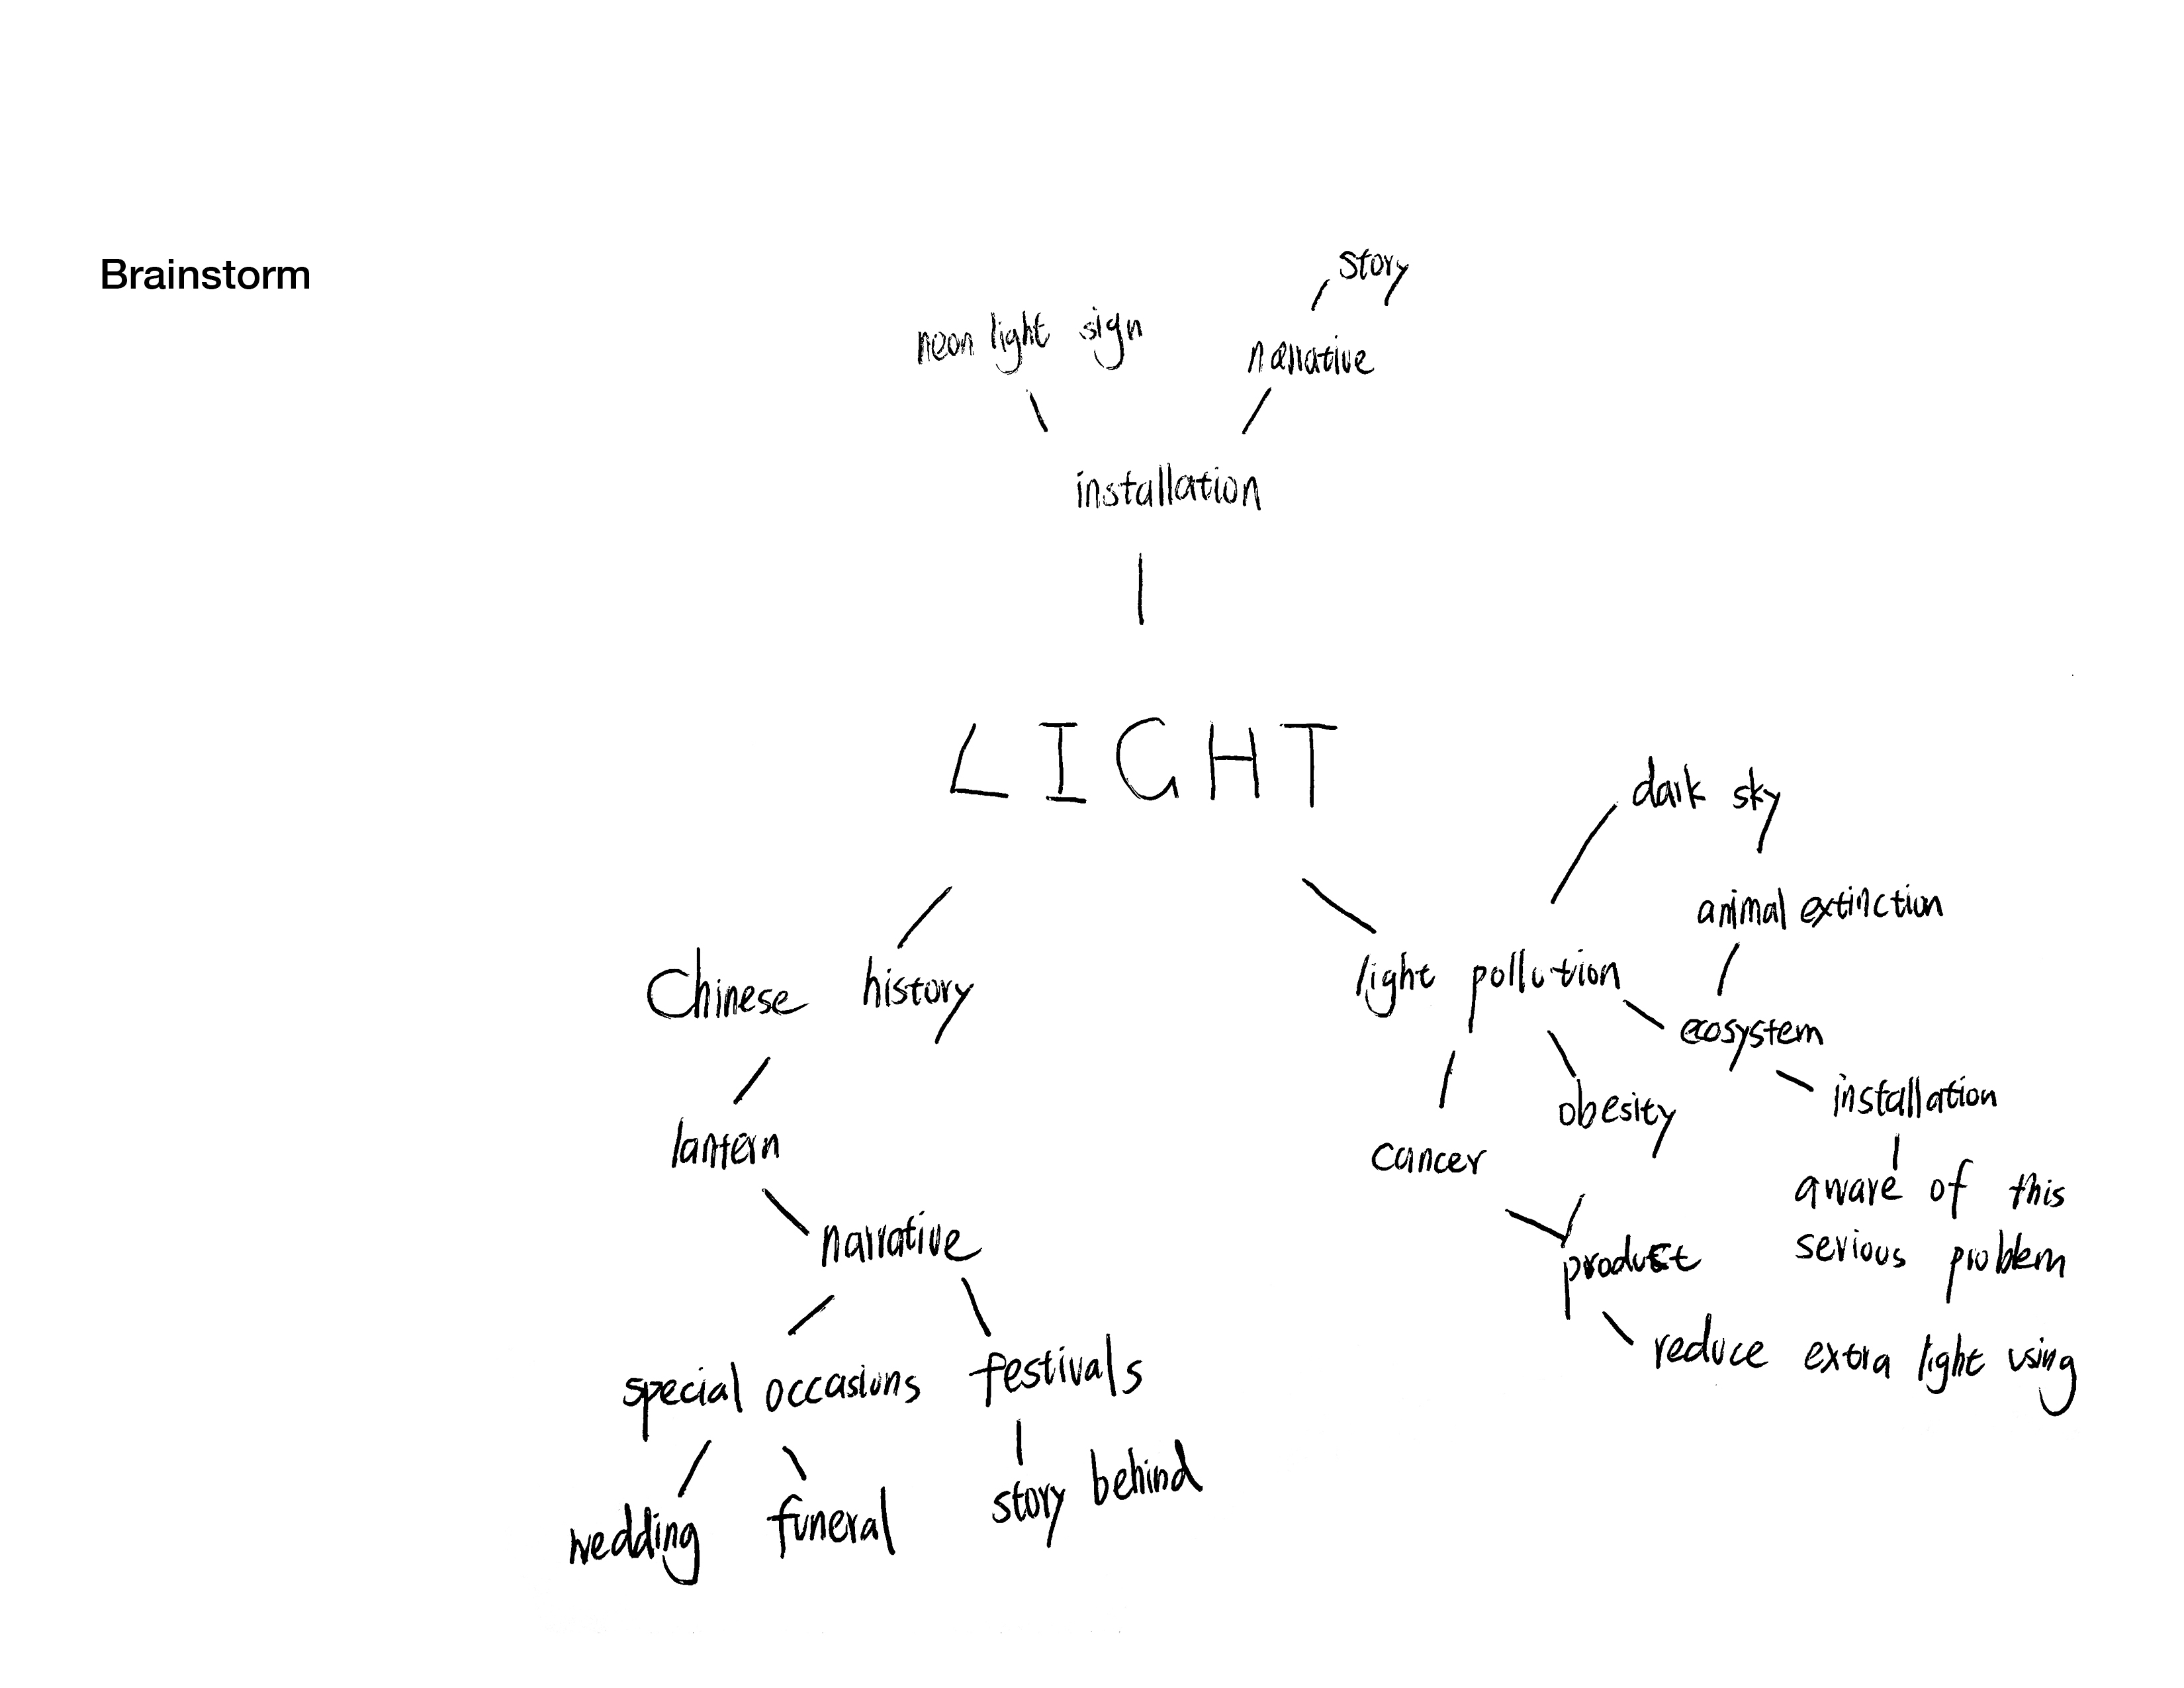 Brainstorm
story
neon light sign
narrative
installation
LIGHT
dark sky
animal extinction
Chinese history
light pollution
ecosystem
installation
obesity
lantern
cancer
aware of this
serious problem
narrative
product
reduce extra light using
special occasions
festivals
story behind
wedding
funeral